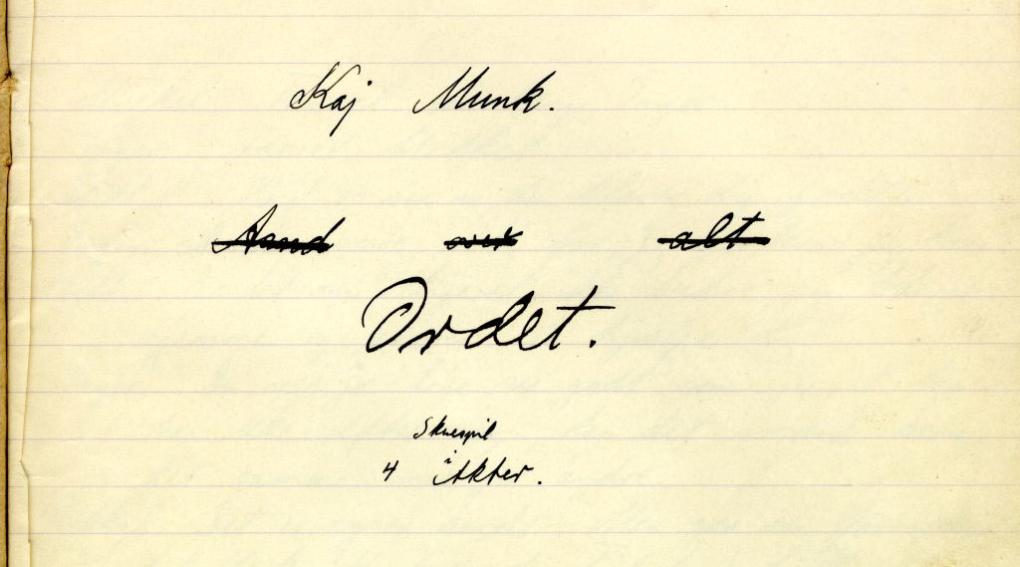 Kaj Munk.
Aand over alt
Ordet.
Skuespil
i
4 Akter.